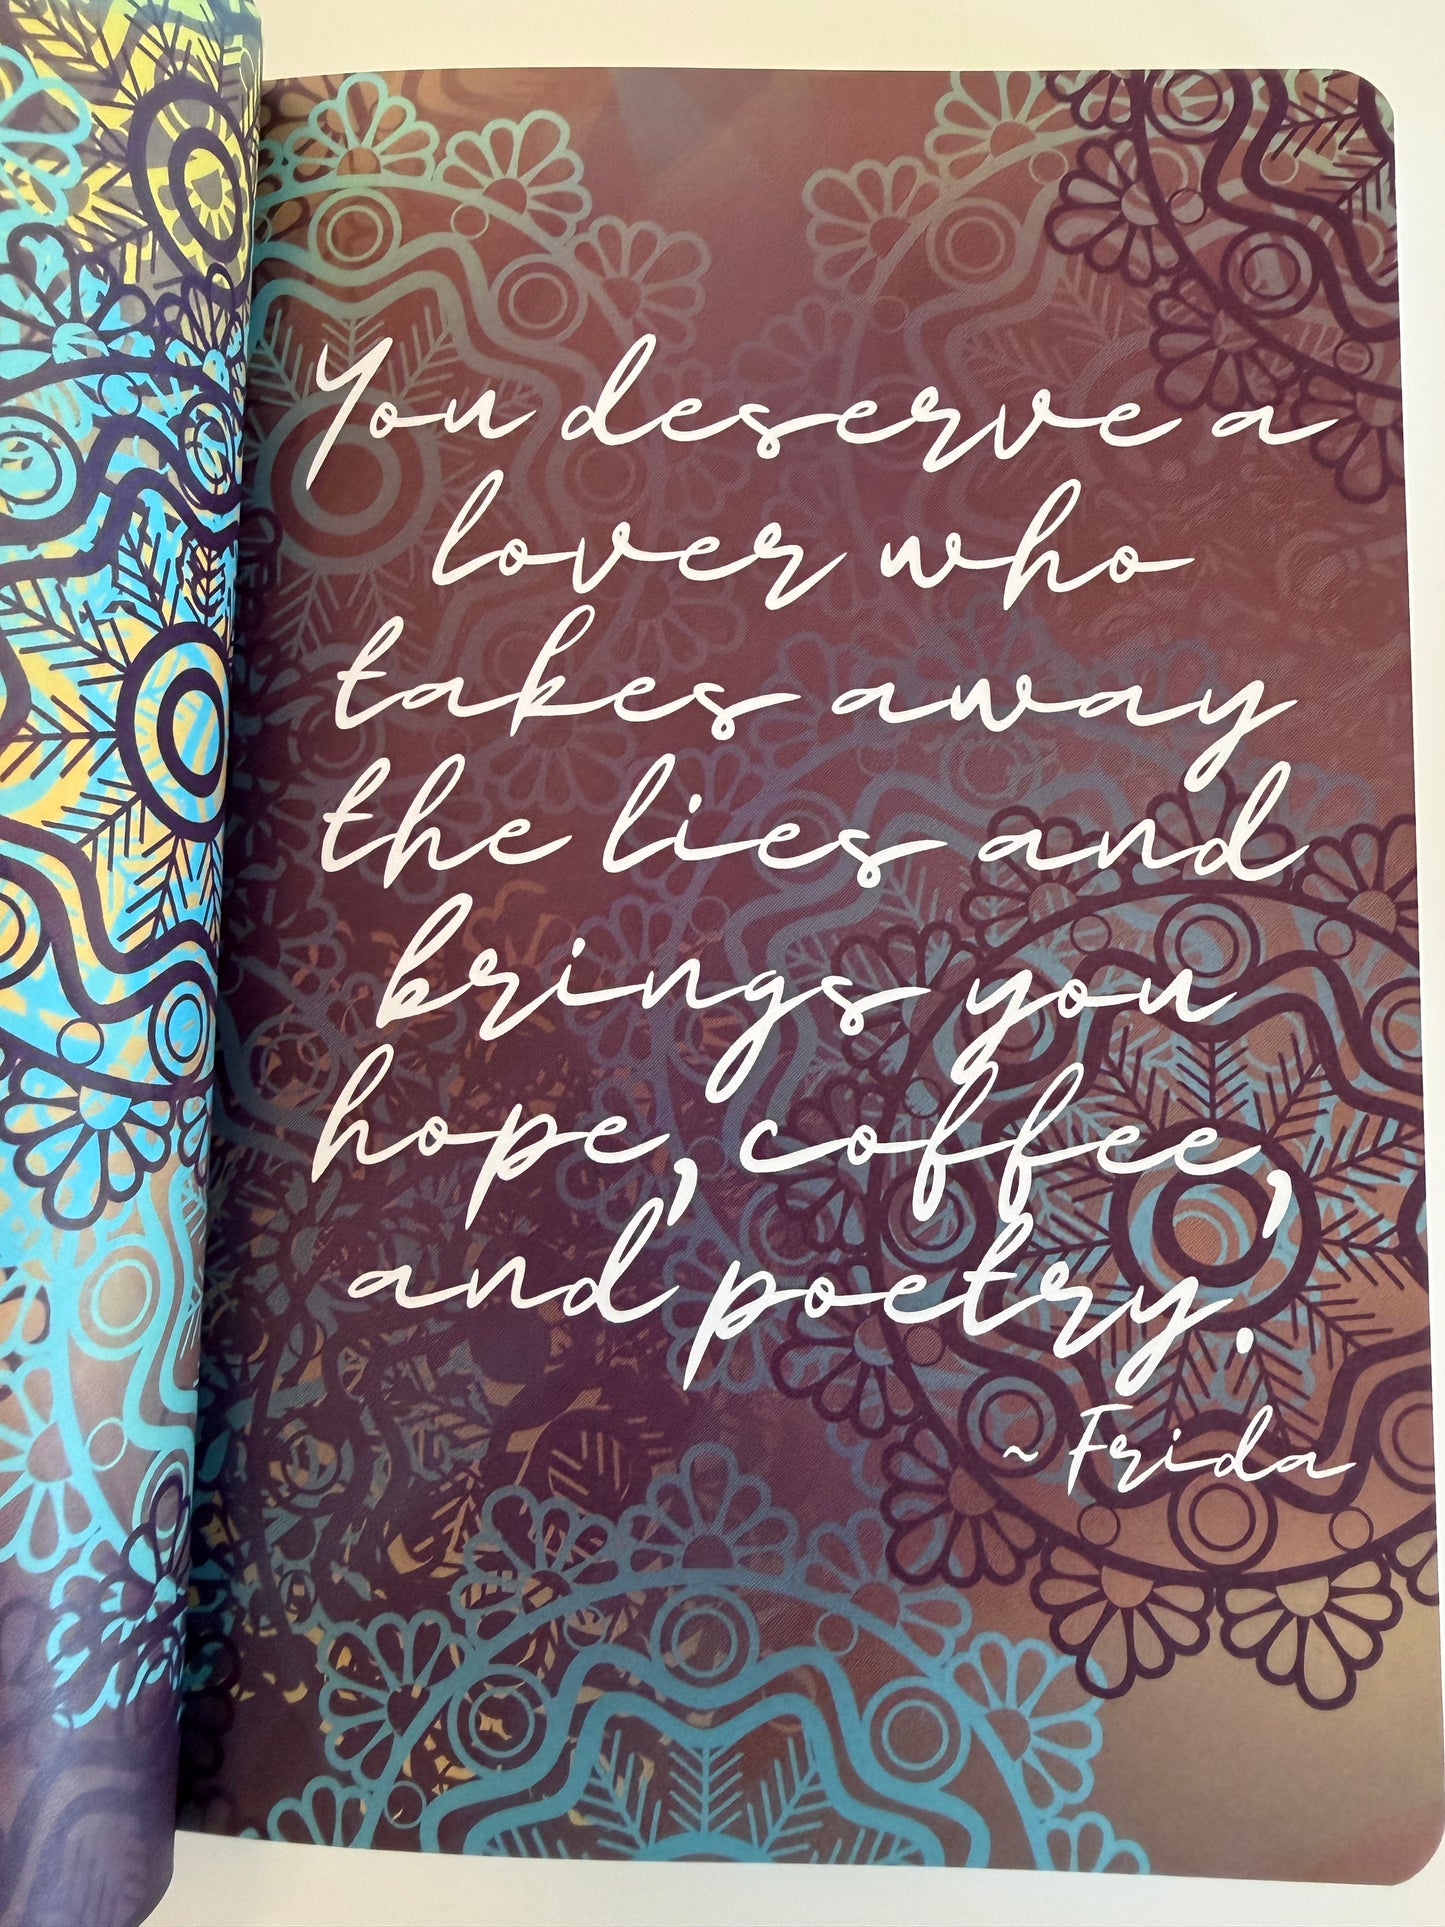 You deserve a
lover who
takes away
the lies and
brings you
hope, coffee,
and poetry.
~ Frida